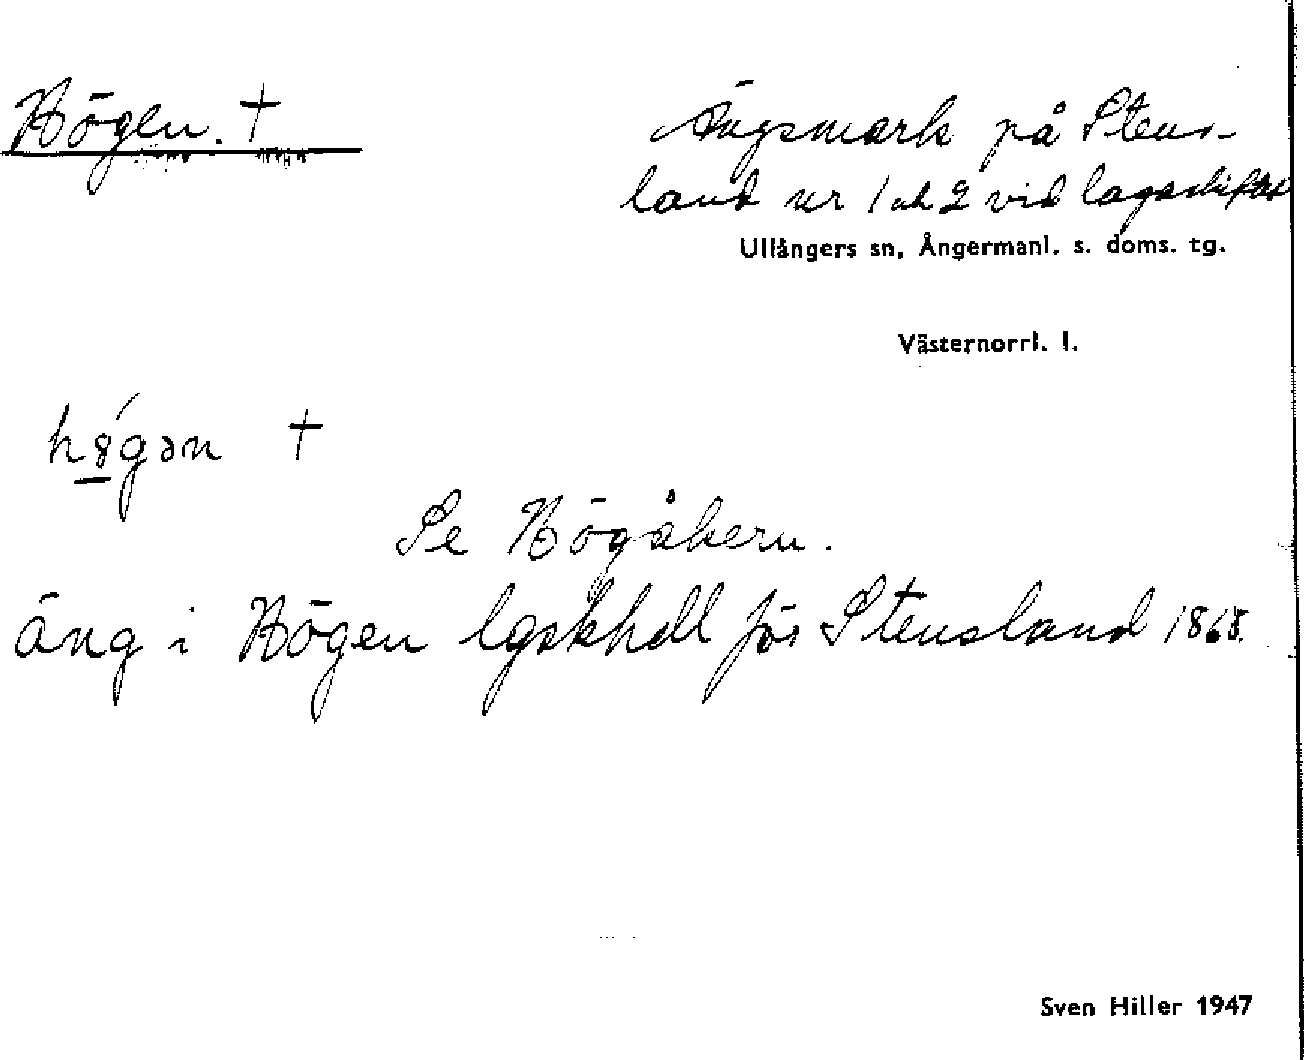 Högen. †
Ängsmark på Stens-
land nr 1 och 2 vid lagaskiftet
Ullångers sn, Ångermanl. s. doms. tg.
Västernorrl. l.
†
Se Högåkern.
äng i Högen lgskhdl för Stensland 1868.
Sven Hiller 1947